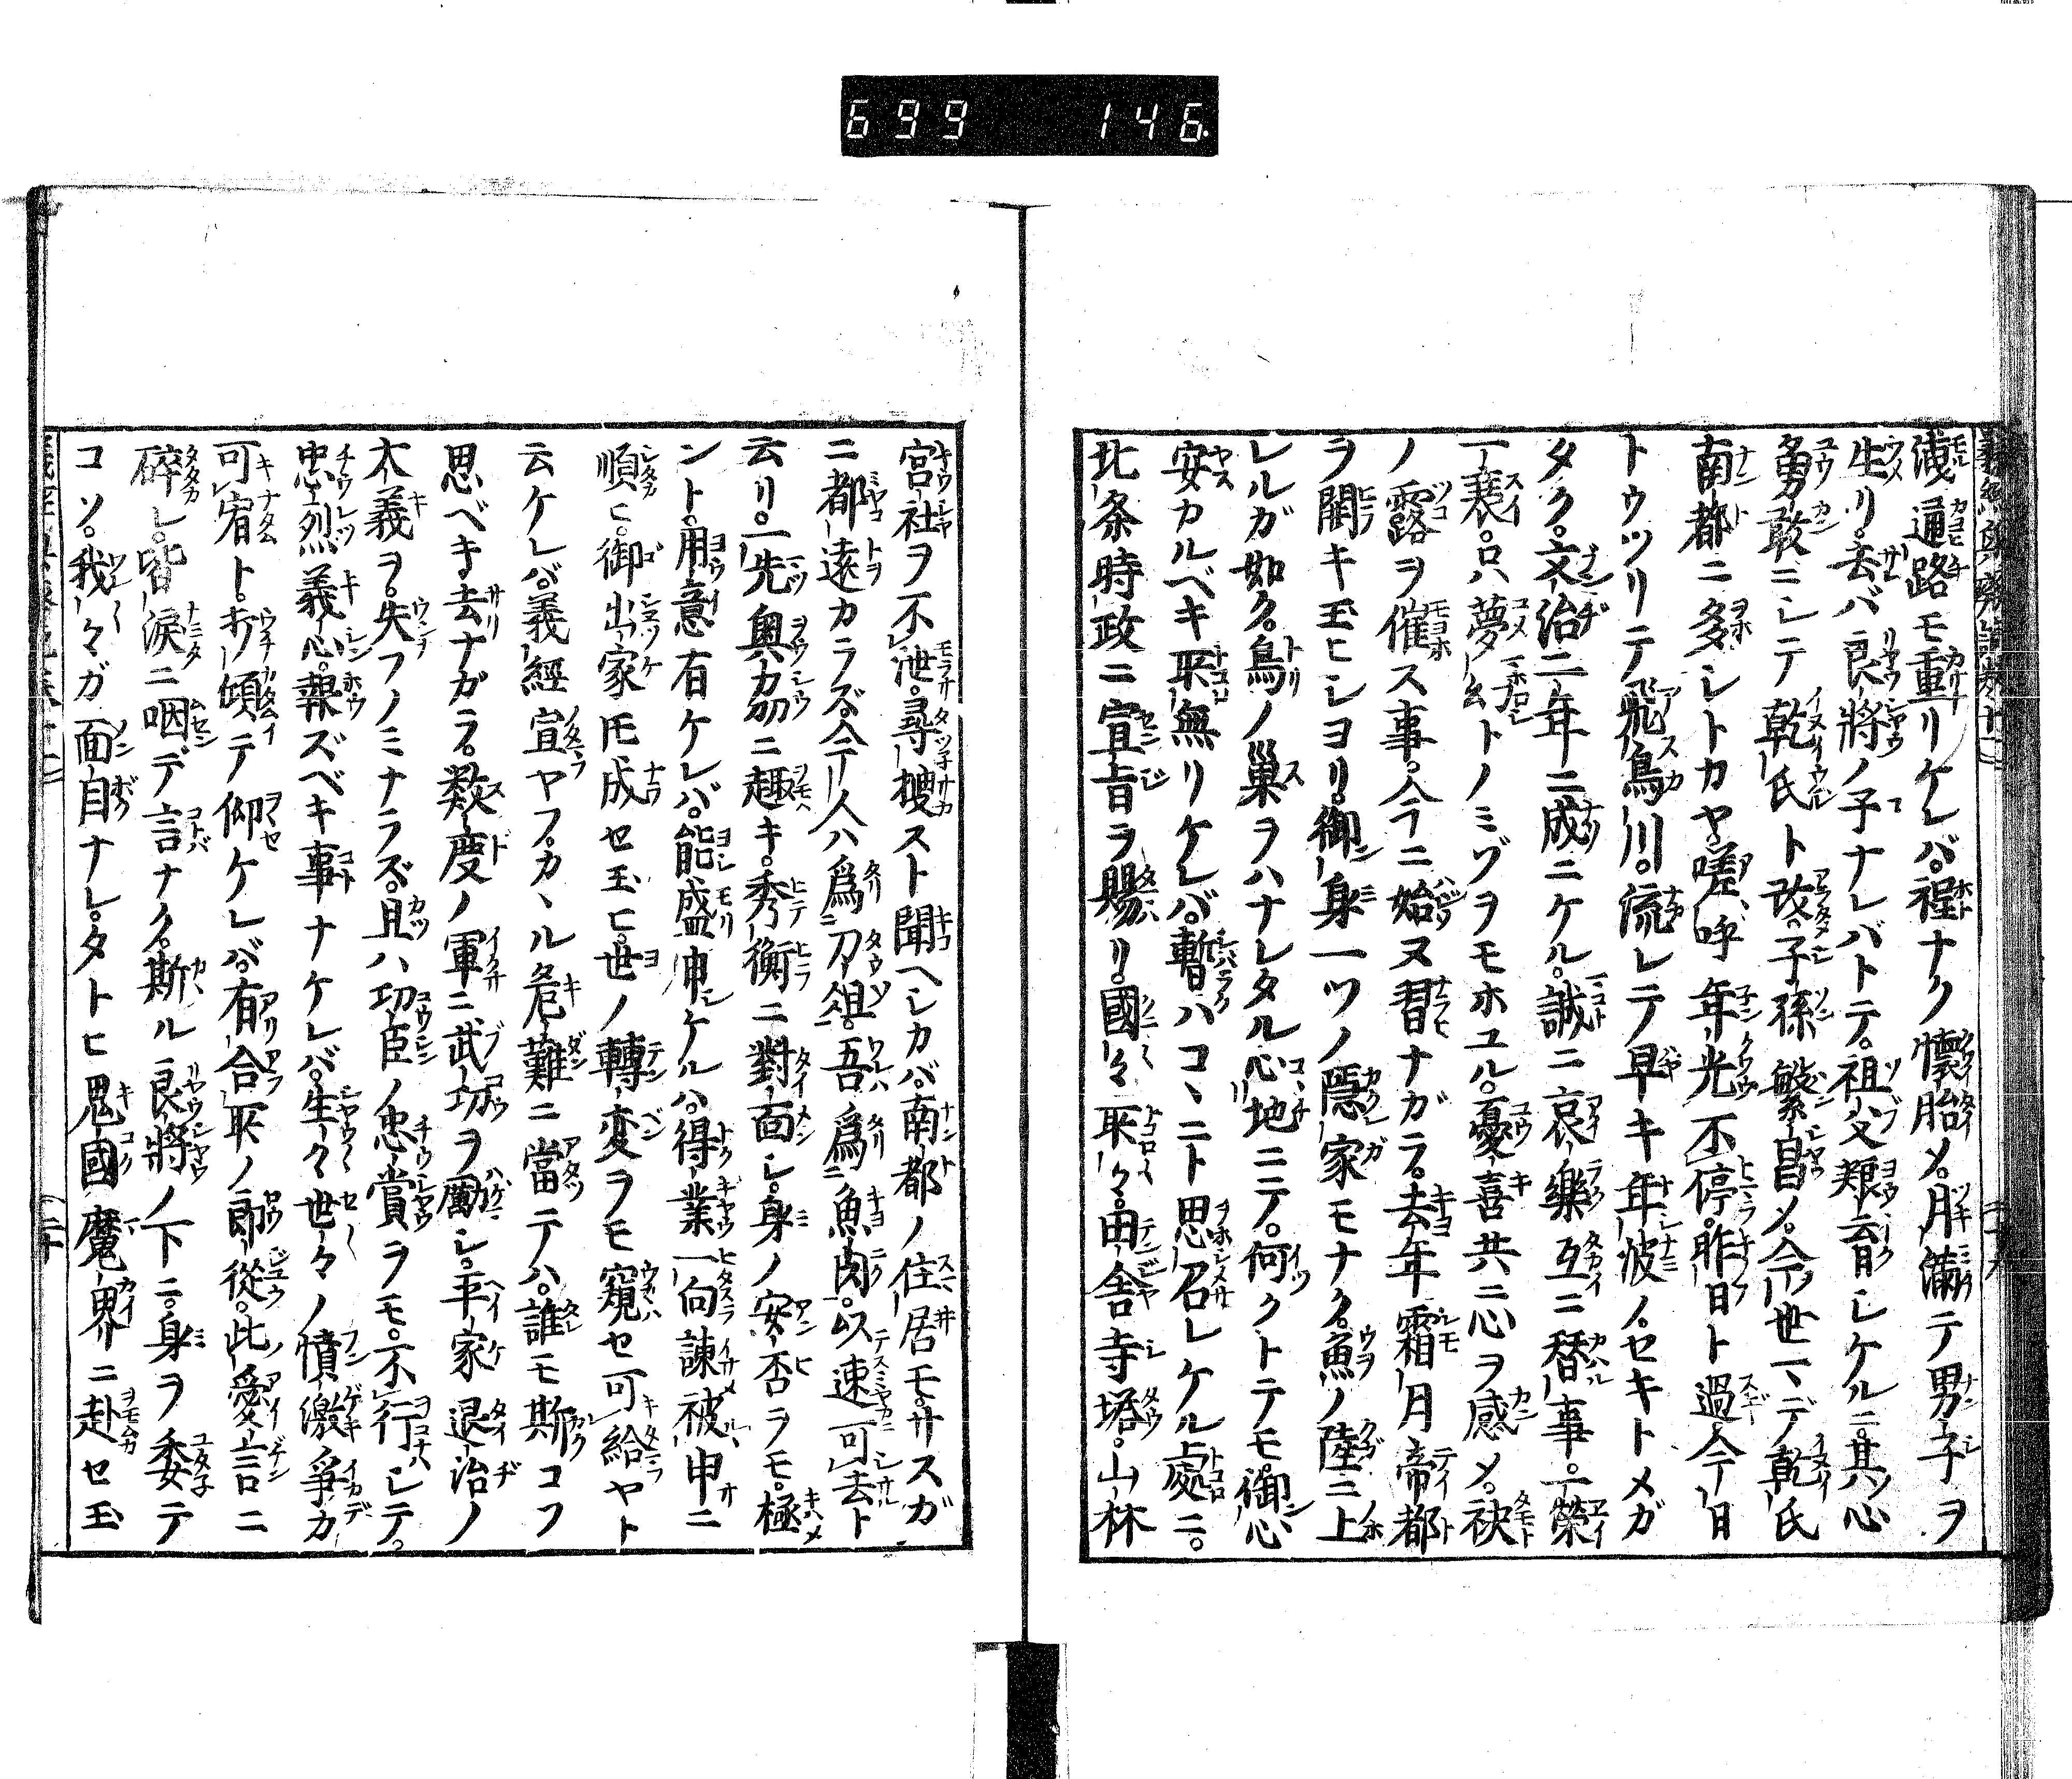 699 146.
洩通路モ重リケレバ。程ナク懐胎メ。月滿テ男子ヲ
生リ。去バ良將ノ子ナレバトテ。祖父艱育シケルニ。其心
勇敢ニシテ乾氏ト改。子孫繁昌メ。今世マデ乾氏
南都ニ多シトカヤ。嗟呼年光不停。昨日ト過今日
トウツリテ飛鳥川。流レテ早キ年波ノセキトメガ
タク。文治二年ニ成ニケル。誠ニ哀樂互ニ替事。一榮
一衰。只夢幻トノミゾヲモホユル。憂喜共ニ心ヲ感メ。袂
ノ露ヲ催ス事。今ニ始ヌ習ナガラ。去年霜月帝都
ヲ闢キ玉ヒシヨリ。御身一ツノ隱家モナク。魚ノ陸ニ上
レルガ如ク。鳥ノ巢ヲハナレタル心地ニテ。何クトテモ。御心
安カルベキ所無リケレバ。暫ハコヽニト思召レケル處ニ。
北条時政ニ宣旨ヲ賜リ。國々所々。田舎寺塔。山林
宮社ヲ不洩。尋捜スト聞ヘシカバ。南都ノ住居モ。サスガ
ニ都遠カラズ。今人ハ爲刀俎。吾爲魚肉。以速可去ト
云リ。一先奥州ニ趣キ。秀衡ニ對面シ。身ノ安否ヲモ。極
ント。用意有ケレバ。能盛申ケルハ。得業一向諫被申ニ
順ヒ。御出家モ成セ玉ヒ。世ノ轉変ヲモ窺セ可給ヤト
云ケレバ。義經宣ヤフ。カヽル危難ニ當テハ。誰モ斯コフ
思ベキ。去ナガラ。數度ノ軍ニ武功ヲ勵シ。平家退治ノ
大義ヲ。失フノミナラズ。且ハ功臣ノ忠賞ヲモ。不行シテ。
忠烈義心。報ズベキ事ナケレバ。生々世々ノ憤激爭カ
可宥ト。打傾テ仰ケレバ。有合所ノ郎從。此愛言ニ
碎レ。皆涙ニ咽デ言ナク。斯ル良將ノ下ニ。身ヲ委テ
コソ。我々ガ面目ナレ。タトヒ鬼國魔界ニ赴セ玉